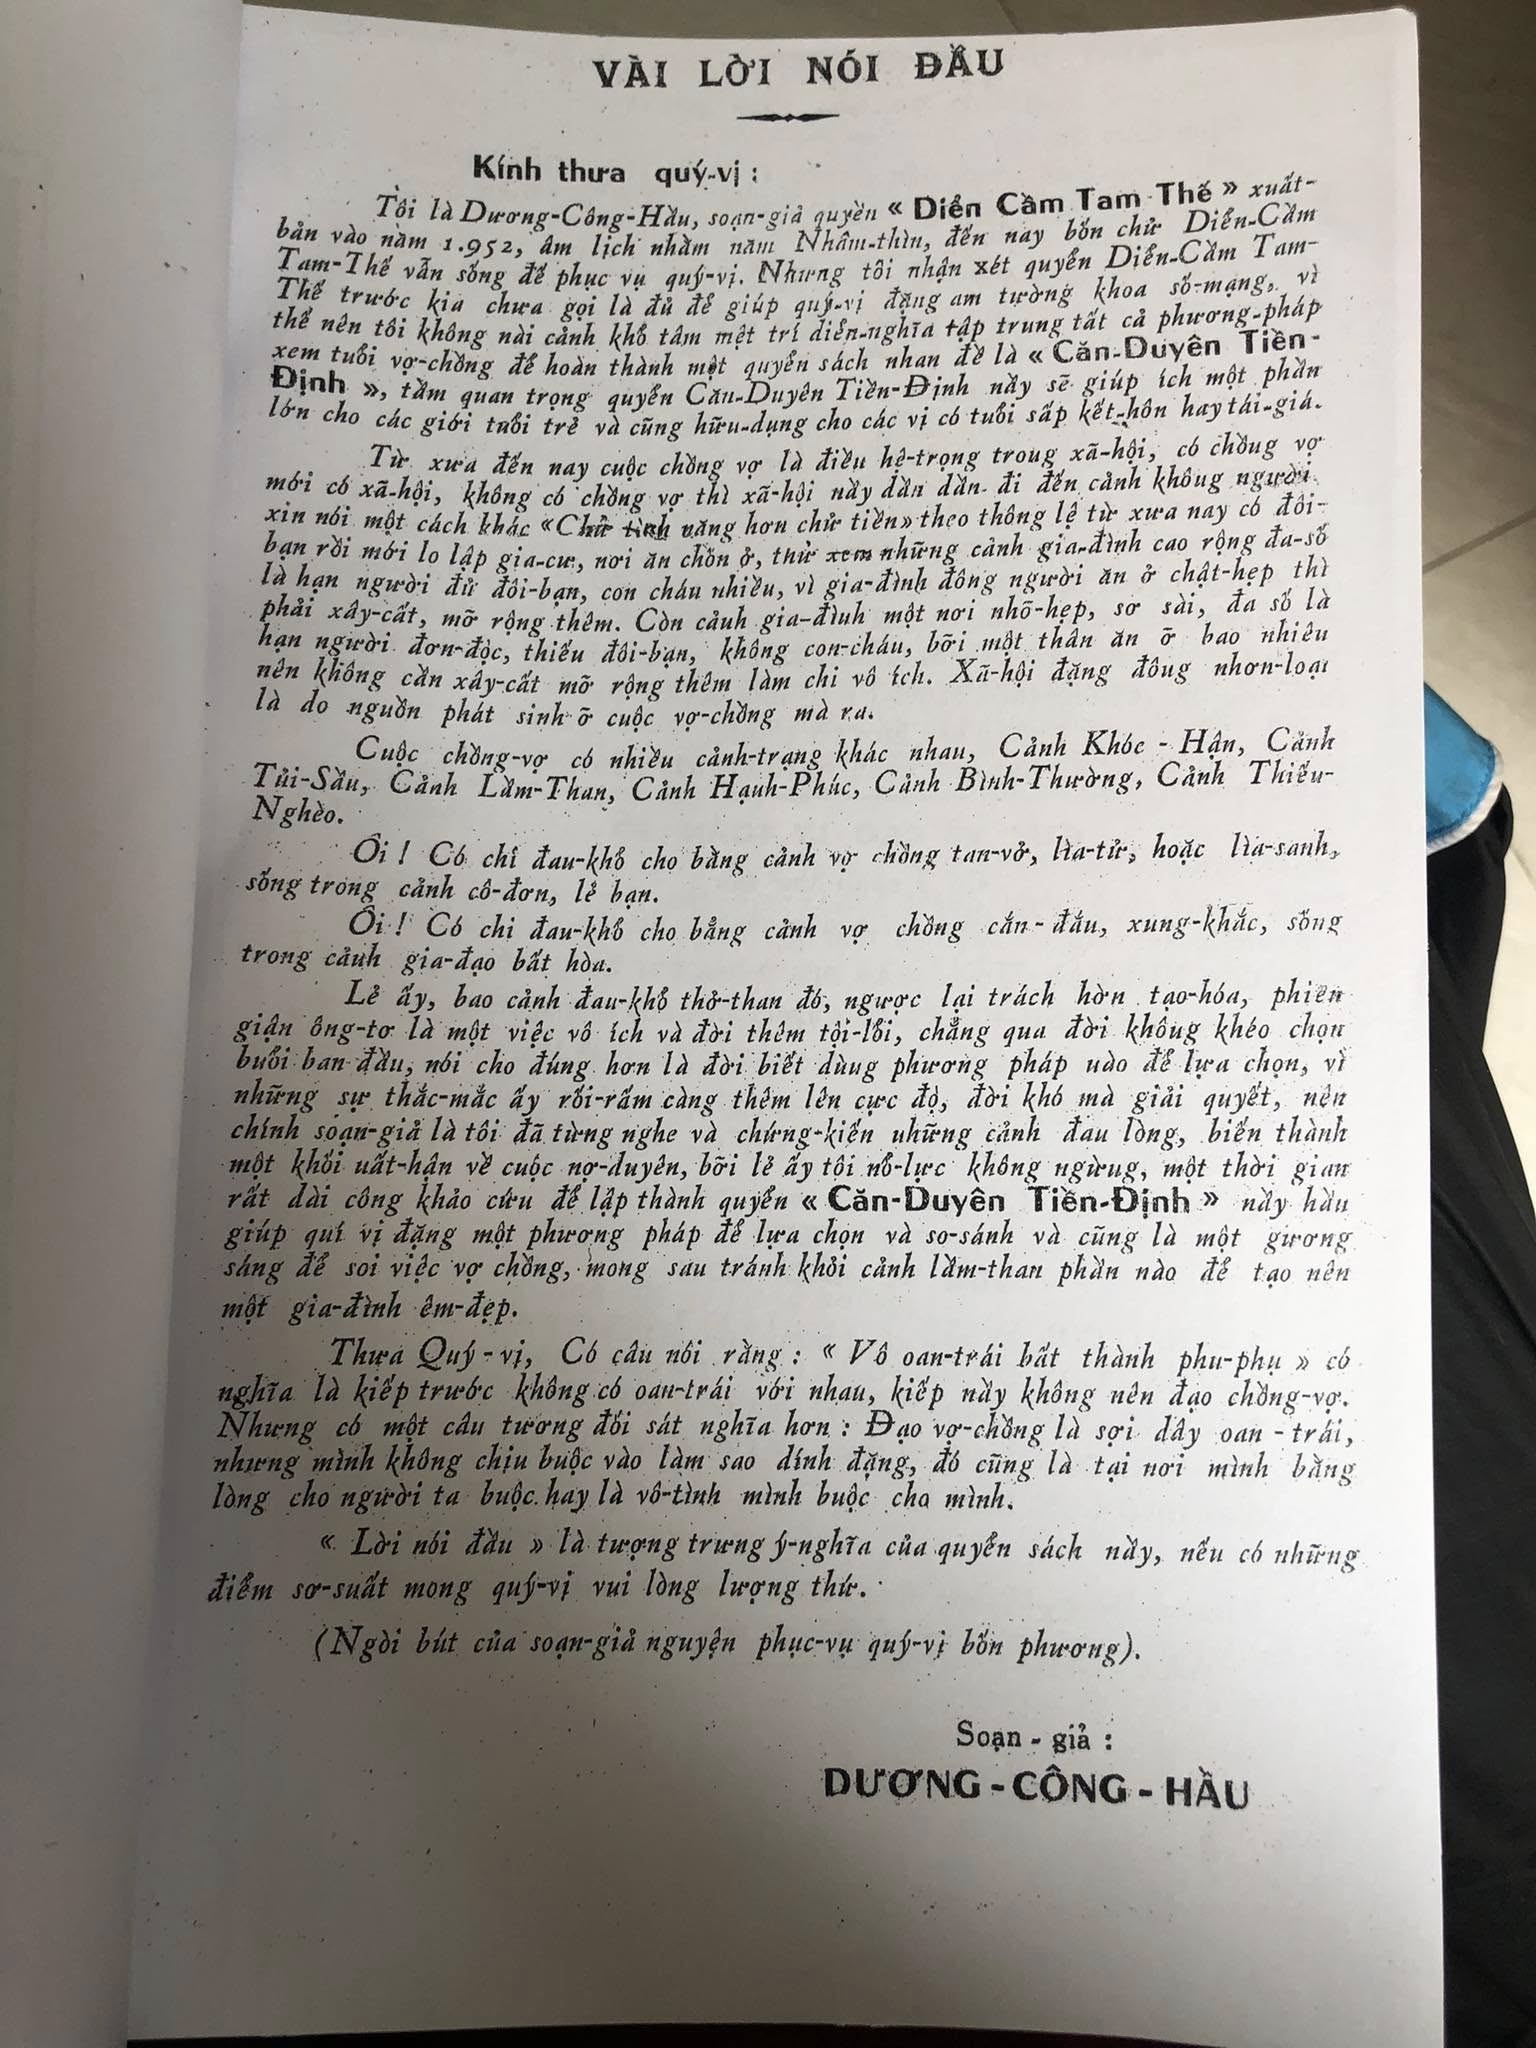 VÀI LỜI NÓI ĐẦU
Kính thưa quý-vị :
Tôi là Dương-Công-Hầu, soạn-giả quyển « Diển Cầm Tam Thế » xuất-
bản vào năm 1.952, âm lịch nhằm năm Nhâm-thìn, đến nay bốn chử Diển-Cầm
Tam-Thế vẫn sống để phục vụ quý-vị. Nhưng tôi nhận xét quyển Diển-Cầm Tam-
Thế trước kia chưa gọi là đủ để giúp quý-vị đặng am tường khoa số-mạng, vì
thế nên tôi không nài cảnh khổ tâm mệt trí diển-nghĩa tập trung tất cả phương-pháp
xem tuổi vợ-chồng để hoàn thành một quyển sách nhan đề là « Căn-Duyên Tiền-
Định », tầm quan trọng quyển Căn-Duyên Tiền-Định nầy sẽ giúp ích một phần
lớn cho các giới tuổi trẻ và cũng hữu-dụng cho các vị có tuổi sắp kết-hôn hay tái-giá.
Từ xưa đến nay cuộc chồng vợ là điều hệ-trọng trong xã-hội, có chồng vợ
mới có xã-hội, không có chồng vợ thì xã-hội nầy dần dần đi đến cảnh không người
xin nói một cách khác «Chử tình nặng hơn chử tiền» theo thông lệ từ xưa nay có đôi-
bạn rồi mới lo lập gia-cư, nơi ăn chốn ở, thử xem những cảnh gia-đình cao rộng đa-số
là hạn người đử đôi-bạn, con cháu nhiều, vì gia-đình đông người ăn ở chật-hẹp thì
phải xây-cất, mỡ rộng thêm. Còn cảnh gia-đình một nơi nhõ-hẹp, sơ sài, đa số là
hạn người đơn-độc, thiếu đôi-bạn, không con-cháu, bỡi một thân ăn ỡ bao nhiêu
nên không cần xây-cất mỡ rộng thêm làm chi vô ích. Xã-hội đặng đông nhơn-loại
là do nguồn phát sinh ỡ cuộc vợ-chồng mà ra.
Cuộc chồng-vợ có nhiều cảnh-trạng khác nhau, Cảnh Khóc - Hận, Cảnh
Tủi-Sầu, Cảnh Lầm-Than, Cảnh Hạnh-Phúc, Cảnh Bình-Thường, Cảnh Thiếu-
Nghèo.
Ôi ! Có chi đau-khổ cho bằng cảnh vợ chồng tan-vở, lìa-tử, hoặc lìa-sanh,
sống trong cảnh cô-đơn, lẻ bạn.
Ôi ! Có chi đau-khổ cho bằng cảnh vợ chồng cắn-đắu, xung-khắc, sống
trong cảnh gia-đạo bất hòa.
Lẻ ấy, bao cảnh đau-khổ thở-than đó, ngược lại trách hờn tạo-hóa, phiền
giận ông-tơ là một việc vô ích và đời thêm tội-lổi, chẳng qua đời không khéo chọn
buổi ban đầu, nói cho đúng hơn là đời biết dùng phương pháp nào để lựa chọn, vì
những sự thắc-mắc ấy rối-rấm càng thêm lên cực độ, đời khó mà giải quyết, nên
chính soạn-giả là tôi đã từng nghe và chứng-kiến những cảnh đau lòng, biến thành
một khối uất-hận về cuộc nợ-duyên, bỡi lẻ ấy tôi nổ-lực không ngừng, một thời gian
rất dài công khảo cứu để lập thành quyển « Căn-Duyên Tiền-Định » nầy hầu
giúp quí vị đặng một phương pháp để lựa chọn và so-sánh và cũng là một gương
sáng để soi việc vợ chồng, mong sau tránh khỏi cảnh lầm-than phần nào để tạo nên
một gia-đình êm-đẹp.
Thưa Quý-vị, Có câu nói rằng : « Vô oan-trái bất thành phu-phụ » có
nghĩa là kiếp trước không có oan-trái với nhau, kiếp nầy không nên đạo chồng-vợ.
Nhưng có một câu tương đối sát nghĩa hơn : Đạo vợ-chồng là sợi dây oan - trái,
nhưng mình không chịu buộc vào làm sao dính đặng, đó cũng là tại nơi mình bằng
lòng cho người ta buộc hay là vô-tình mình buộc cho mình.
« Lời nói đầu » là tượng trưng ý-nghĩa của quyển sách nầy, nếu có những
điểm sơ-suất mong quý-vị vui lòng lượng thứ.
(Ngòi bút của soạn-giả nguyện phục-vụ quý-vị bốn phương).
Soạn - giả :
DƯƠNG - CÔNG - HẦU